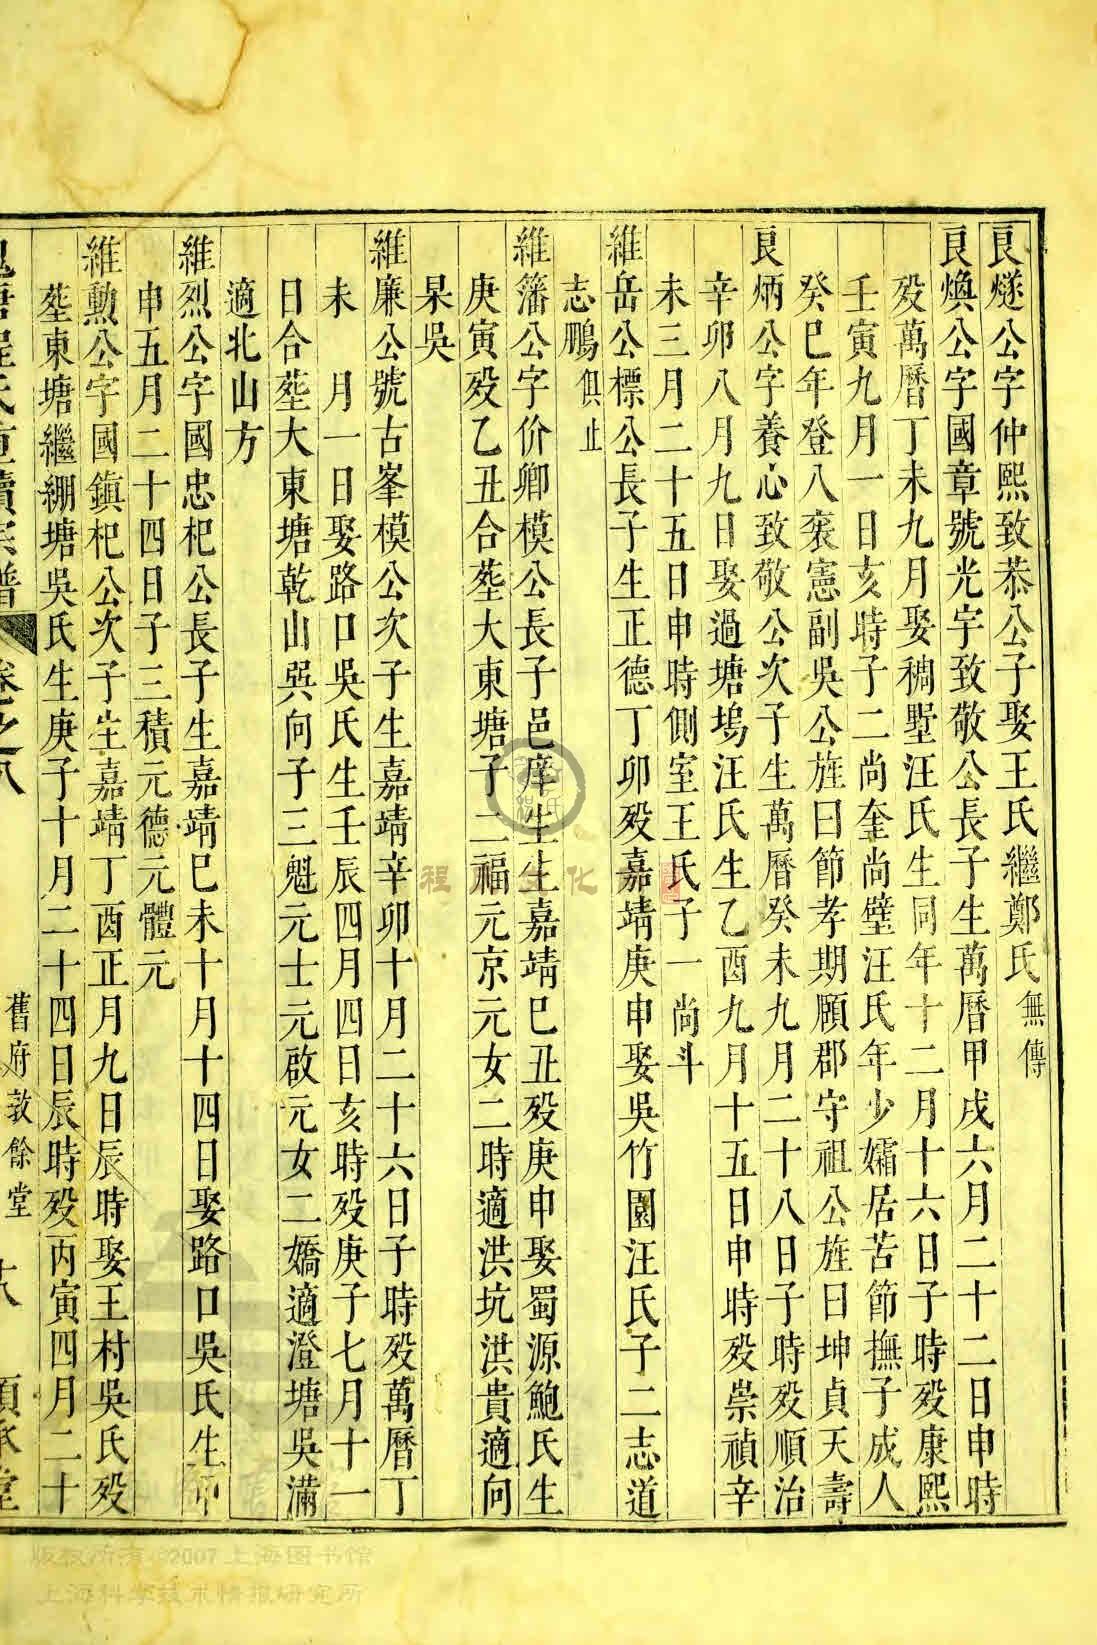 良燧公字仲熙致恭公子娶王氏繼鄭氏無傳
良煥公字國章號光宇致敬公長子生萬曆甲戌六月二十二日申時
歿萬曆丁未九月娶稠墅汪氏生同年十二月十六日子時歿康熙
壬寅九月一日亥時子二尚奎尚璧汪氏年少孀居苦節撫子成人
癸巳年登八袠憲副吳公旌曰節孝期頤郡守祖公旌曰坤貞天壽
良炳公字養心致敬公次子生萬曆癸未九月二十八日子時歿順治
辛卯八月九日娶過塘塢汪氏生乙酉九月十五日申時歿崇禎辛
未三月二十五日申時側室王氏子一尚斗
維岳公標公長子生正德丁卯歿嘉靖庚申娶吳竹園汪氏子二志道
志鵬俱止
維籓公字价卿模公長子邑庠生生嘉靖巳丑歿庚申娶蜀源鮑氏生
庚寅歿乙丑合塟大東塘子二福元京元女二時適洪坑洪貴適向
杲吳
維廉公號古峯模公次子生嘉靖辛卯十月二十六日子時歿萬曆丁
未 月一日娶路口吳氏生壬辰四月四日亥時歿庚子七月十一
日合塟大東塘乾山巽向子三魁元士元啟元女二嬌適澄塘吳滿
適北山方
維烈公字國忠杞公長子生嘉靖巳未十月十四日娶路口吳氏生
申五月二十四日子三積元德元體元
維勳公字國鎮杞公次子生嘉靖丁酉正月九日辰時娶王村吳氏歿
塟東塘繼綳塘吳氏生庚子十月二十四日辰時歿丙寅四月二十
卷之八 舊府敦餘堂 十八
程氏文化
版权所有©2007上海图书馆
上海科学技术情报研究所